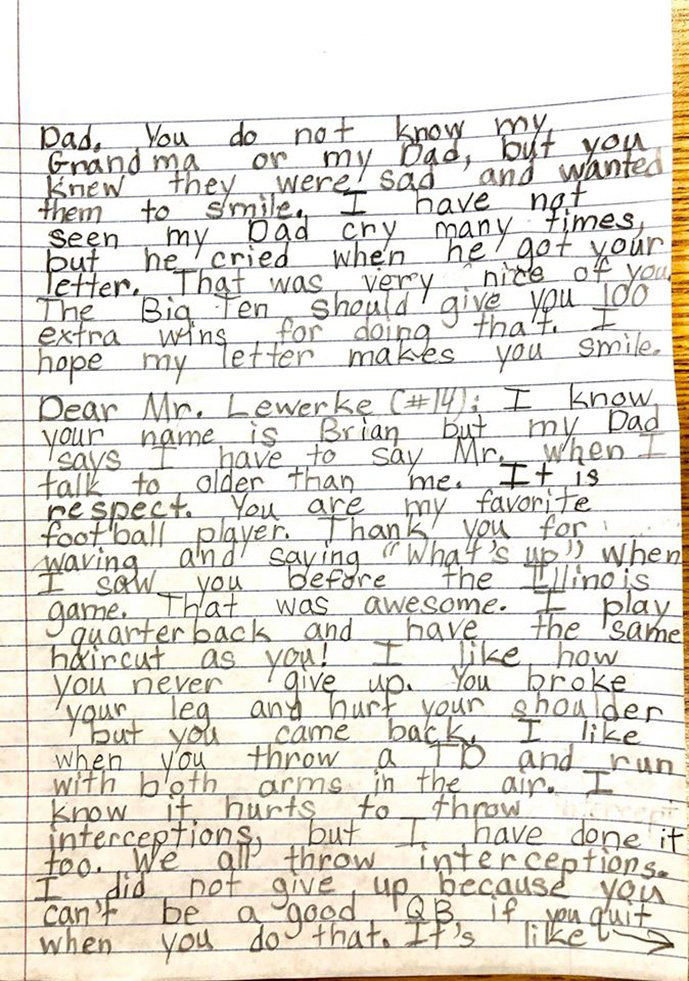 Dad. You do not know my
Grandma or my Dad, but you
knew they were sad and wanted
them to smile. I have not
seen my Dad cry many times,
but he cried when he got your
letter. That was very nice of you.
The Big Ten should give you 100
extra wins for doing that. I
hope my letter makes you smile.
Dear Mr. Lewerke (#14): I know
your name is Brian but my Dad
says I have to say Mr. when I
talk to older than me. It is
respect. You are my favorite
football player. Thank you for
waving and saying "What's up" when
I saw you before the Illinois
game. That was awesome. I play
quarterback and have the same
haircut as you! I like how
you never give up. You broke
your leg and hurt your shoulder
but you came back. I like
when you throw a TD and run
with both arms in the air. I
know it hurts to throw
interceptions, but I have done it
too. We all throw interceptions.
I did not give up because you
can't be a good QB if you quit
when you do that. It's like →